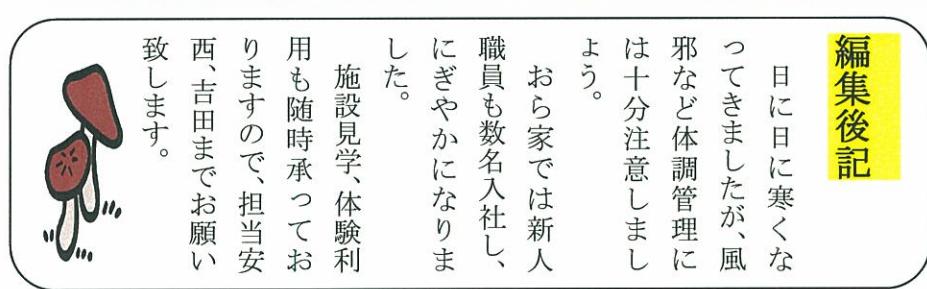 編集後記
日に日に寒くな
ってきましたが、風
邪など体調管理に
は十分注意しまし
ょう。
おら家では新人
職員も数名入社し、
にぎやかになりま
した。
施設見学、体験利
用も随時承ってお
りますので、担当安
西、吉田までお願い
致します。